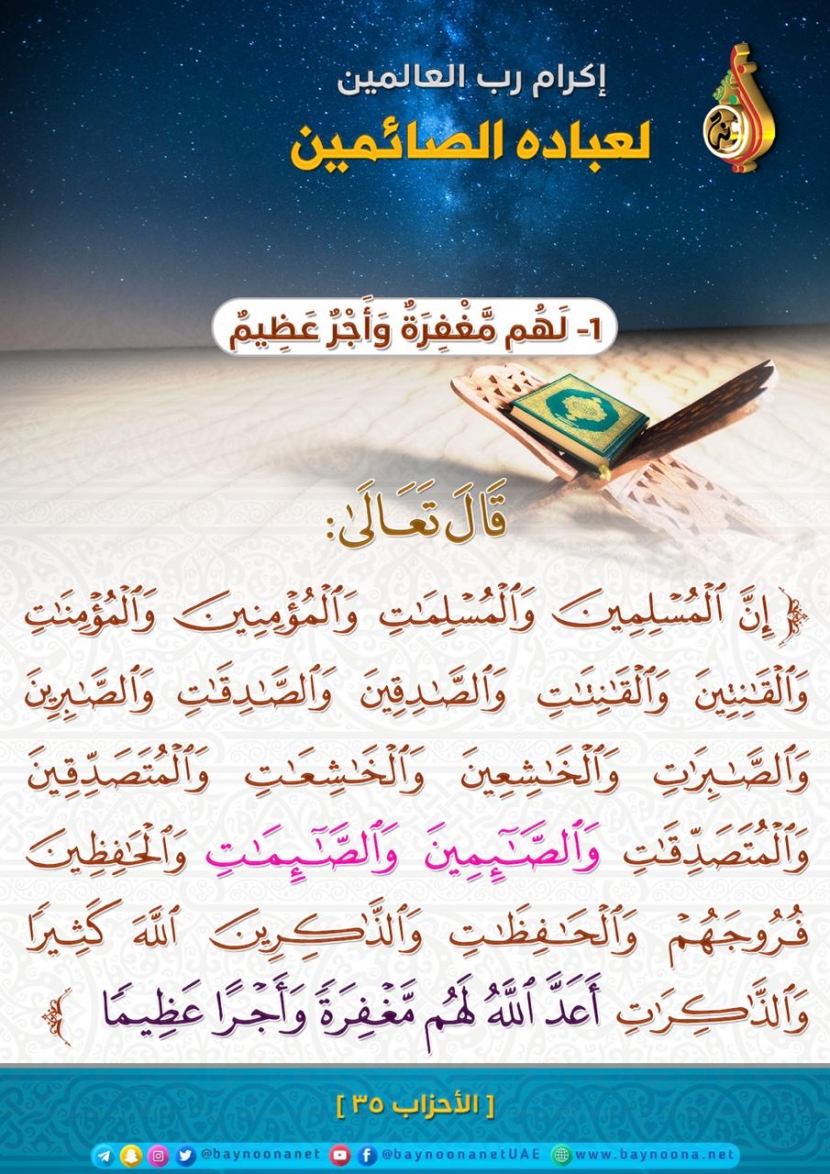 إكرام رب العالمين
لعباده الصائمين
1- لَهُم مَّغْفِرَةٌ وَأَجْرٌ عَظِيمٌ
قَالَ تَعَالَىٰ:
﴿ إِنَّ ٱلْمُسْلِمِينَ وَٱلْمُسْلِمَٰتِ وَٱلْمُؤْمِنِينَ وَٱلْمُؤْمِنَٰتِ
وَٱلْقَٰنِتِينَ وَٱلْقَٰنِتَٰتِ وَٱلصَّٰدِقِينَ وَٱلصَّٰدِقَٰتِ وَٱلصَّٰبِرِينَ
وَٱلصَّٰبِرَٰتِ وَٱلْخَٰشِعِينَ وَٱلْخَٰشِعَٰتِ وَٱلْمُتَصَدِّقِينَ
وَٱلْمُتَصَدِّقَٰتِ وَٱلصَّٰٓئِمِينَ وَٱلصَّٰٓئِمَٰتِ وَٱلْحَٰفِظِينَ
فُرُوجَهُمْ وَٱلْحَٰفِظَٰتِ وَٱلذَّٰكِرِينَ ٱللَّهَ كَثِيرًا
وَٱلذَّٰكِرَٰتِ أَعَدَّ ٱللَّهُ لَهُم مَّغْفِرَةً وَأَجْرًا عَظِيمًا ﴾
[ الأحزاب ٣٥ ]
@baynoonanet @baynoonanetUAE www.baynoona.net